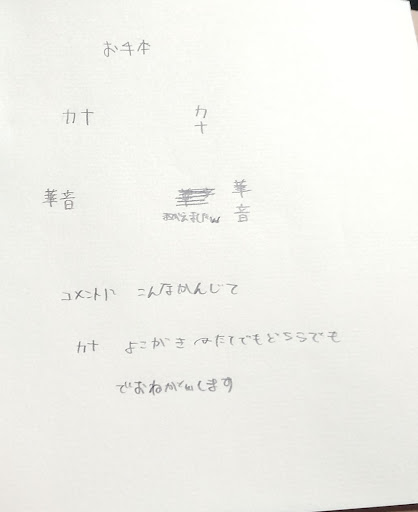 お手本
カナ
カ
ナ
華音
まちがえましたw
華
音
コメントに こんなかんじで
カナ よこがき たてでもどちらでも
でおねがいします